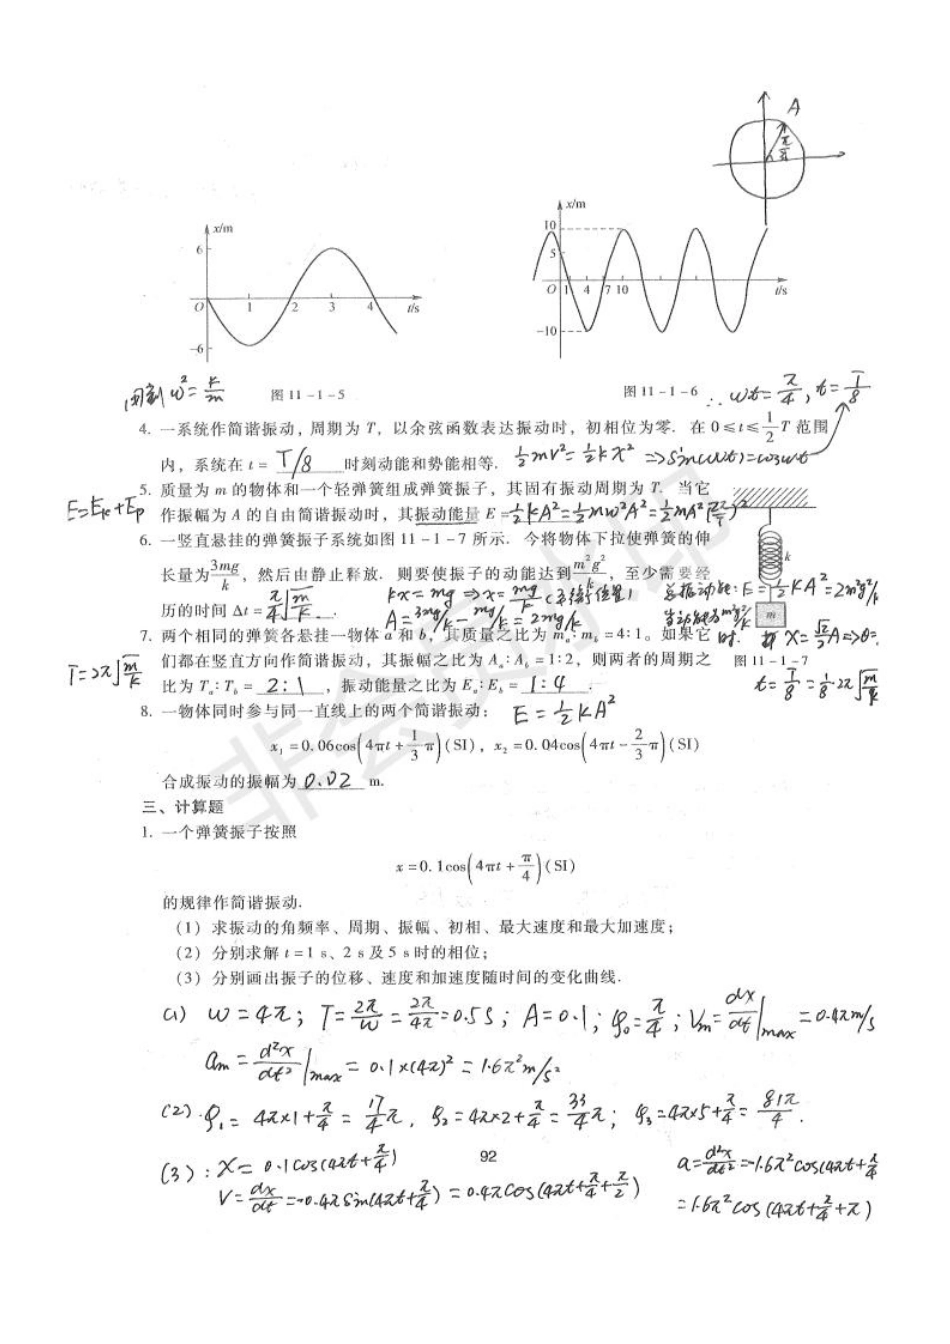 A
π/3
x/m
6
O 1 2 3 4 t/s
-6
x/m
10
5
O 1 4 7 10 t/s
-10
用到 ω²=k/m
图 11-1-5
图 11-1-6
∴ ωt=π/4, t=T/8
4. 一系统作简谐振动，周期为 T，以余弦函数表达振动时，初相位为零. 在 0≤t≤1/2 T 范围
内，系统在 t= T/8 时刻动能和势能相等. ½mv²=½kx² ⇒sin(ωt)=cosωt
5. 质量为 m 的物体和一个轻弹簧组成弹簧振子，其固有振动周期为 T. 当它
E=Ek+Ep
作振幅为 A 的自由简谐振动时，其振动能量 E=½kA²=½mω²A²=½mA²(2π/T)²
6. 一竖直悬挂的弹簧振子系统如图 11-1-7 所示. 今将物体下拉使弹簧的伸
长量为3mg/k，然后由静止释放. 则要使振子的动能达到m²g²/k，至少需要经
历的时间 Δt=π/4√(m/k).
kx=mg ⇒x=mg/k (平衡位置)
A=3mg/k-mg/k=2mg/k
k
m
总振动能:E=½kA²=2m²g²/k
当动能为m²g²/k
时. x=√2/2A⇒θ=
t=T/8=1/8·2π√(m/k)
7. 两个相同的弹簧各悬挂一物体 a 和 b，其质量之比为 mₐ:m_b=4:1。如果它
们都在竖直方向作简谐振动，其振幅之比为 Aₐ:A_b=1:2，则两者的周期之
图 11-1-7
T=2π√(m/k)
比为 Tₐ:T_b= 2:1，振动能量之比为 Eₐ:E_b= 1:4.
8. 一物体同时参与同一直线上的两个简谐振动：
E=½kA²
x₁=0.06cos(4πt+1/3 π)(SI)，x₂=0.04cos(4πt-2/3 π)(SI)
合成振动的振幅为 0.02 m.
三、计算题
1. 一个弹簧振子按照
x=0.1cos(4πt+π/4)(SI)
的规律作简谐振动.
(1) 求振动的角频率、周期、振幅、初相、最大速度和最大加速度；
(2) 分别求解 t=1 s、2 s 及 5 s 时的相位；
(3) 分别画出振子的位移、速度和加速度随时间的变化曲线.
(1) ω=4π; T=2π/ω=2π/4π=0.5S; A=0.1; φ₀=π/4; Vm=dx/dt|max=0.4πm/s
am=d²x/dt²|max=0.1×(4π)²=1.6π²m/s²
(2). φ₁=4π×1+π/4=17/4π, φ₂=4π×2+π/4=33/4π; φ₃=4π×5+π/4=81π/4.
92
(3): x=0.1cos(4πt+π/4)
a=d²x/dt²=-1.6π²cos(4πt+π/4
V=dx/dt=-0.4πsin(4πt+π/4)=0.4πcos(4πt+π/4+π/2)
=1.6π²cos(4πt+π/4+π)
非会员水印